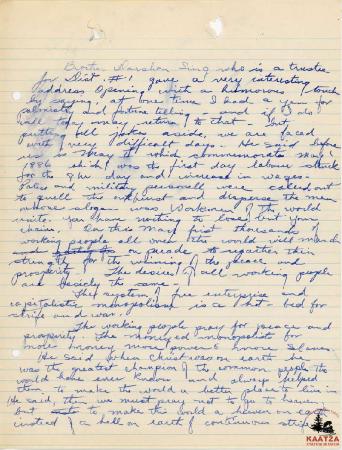 Brother Darshan Sing who is a trustee
for Dist. #1 gave a very interesting
address opening with a humorous touch
by saying, at one time I had a yen for
palmistry and fortune telling and if I do
well today may return to that - but
putting all jokes aside, we are faced
with very difficult days. He said before
us is May 1 which commemorates May 1
1886 which was the first day labour struck
for the 8 hr. day and increase in wages.
Police and military personell were called out
to quell the and disperse the men
whose slogan was Workmen of the world
unite. You have nothing to loose but your
chains. On this May first thousands of
working people all over the world will march
on parade to together their
strength for the winning of the peace and
prosperity. The desires of all working people
are basicly the same -
The system of free enterprise and
capitalistic monopolism is a hot-bed for
strife and war.
The working people pray for peace and
prosperity. The moneyed monopolists for
more money, more power &
He said when Christ was on earth he
was the greatest champion of the common people the
world have ever known and always helped
them to make the world a better place to live in
He said, then we must pray not to go to heaven
but to make the world a heaven on earth
instead of a hell on earth of continuous strife
KAATZA